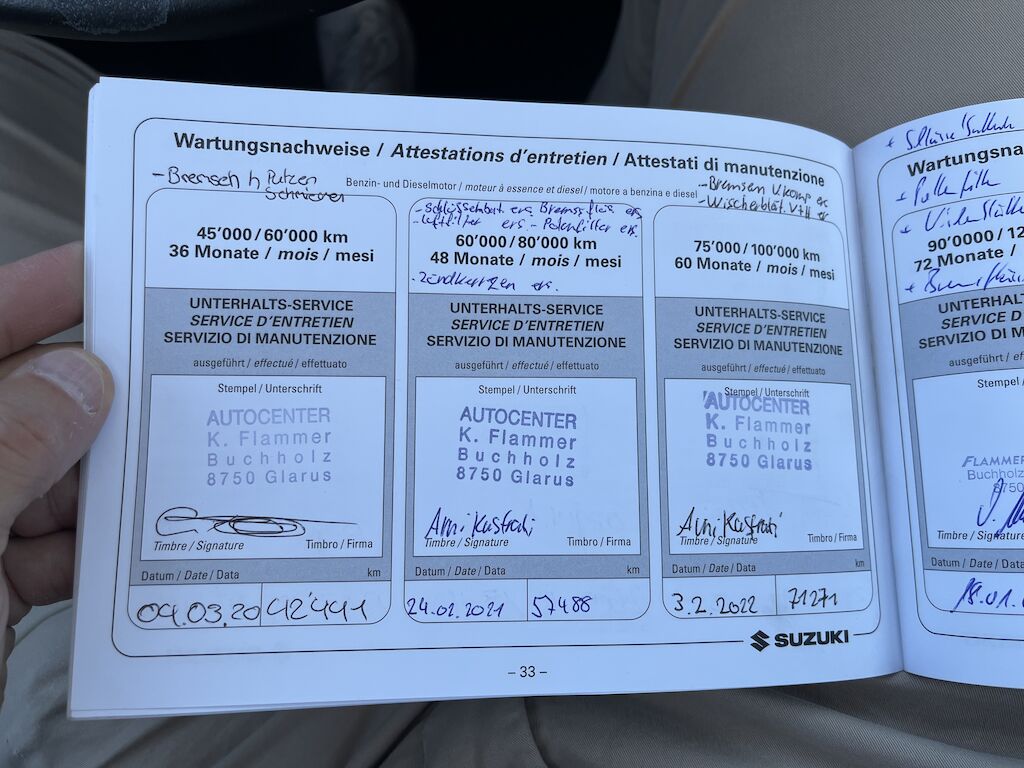 Wartungsnachweise / Attestations d'entretien / Attestati di manutenzione
Benzin- und Dieselmotor / moteur à essence et diesel / motore a benzina e diesel
- Bremsen h Putzen
Schmieren
45'000 / 60'000 km
36 Monate / mois / mesi
UNTERHALTS-SERVICE
SERVICE D'ENTRETIEN
SERVIZIO DI MANUTENZIONE
ausgeführt / effectué / effettuato
Stempel / Unterschrift
AUTOCENTER
K. Flammer
Buchholz
8750 Glarus
Timbre / Signature
Timbro / Firma
Datum / Date / Data
km
04.03.20
42'441
- Schlüsselbat. ers. Bremsflüs. ers
- Luftfilter ers. - Polenfilter ers.
60'000 / 80'000 km
48 Monate / mois / mesi
- Zündkerzen ers.
UNTERHALTS-SERVICE
SERVICE D'ENTRETIEN
SERVIZIO DI MANUTENZIONE
ausgeführt / effectué / effettuato
Stempel / Unterschrift
AUTOCENTER
K. Flammer
Buchholz
8750 Glarus
Ami Kastrati
Timbre / Signature
Timbro / Firma
Datum / Date / Data
km
24.02.2021
57488
- Bremsen V. komp er
- Wischerblät. V+H er
75'000 / 100'000 km
60 Monate / mois / mesi
UNTERHALTS-SERVICE
SERVICE D'ENTRETIEN
SERVIZIO DI MANUTENZIONE
ausgeführt / effectué / effettuato
Stempel / Unterschrift
AUTOCENTER
K. Flammer
Buchholz
8750 Glarus
Ami Kastrati
Timbre / Signature
Timbro / Firma
Datum / Date / Data
km
3.2.2022
71271
SUZUKI
– 33 –
Wartungsna
90'0000 / 12
72 Monate /
UNTERHAL
SERVICE D
SERVIZIO
ausgeführt / ef
Stempel /
FLAMMER
Buchholz
8750
Timbre / Signature
Datum / Date / Data
18.01.